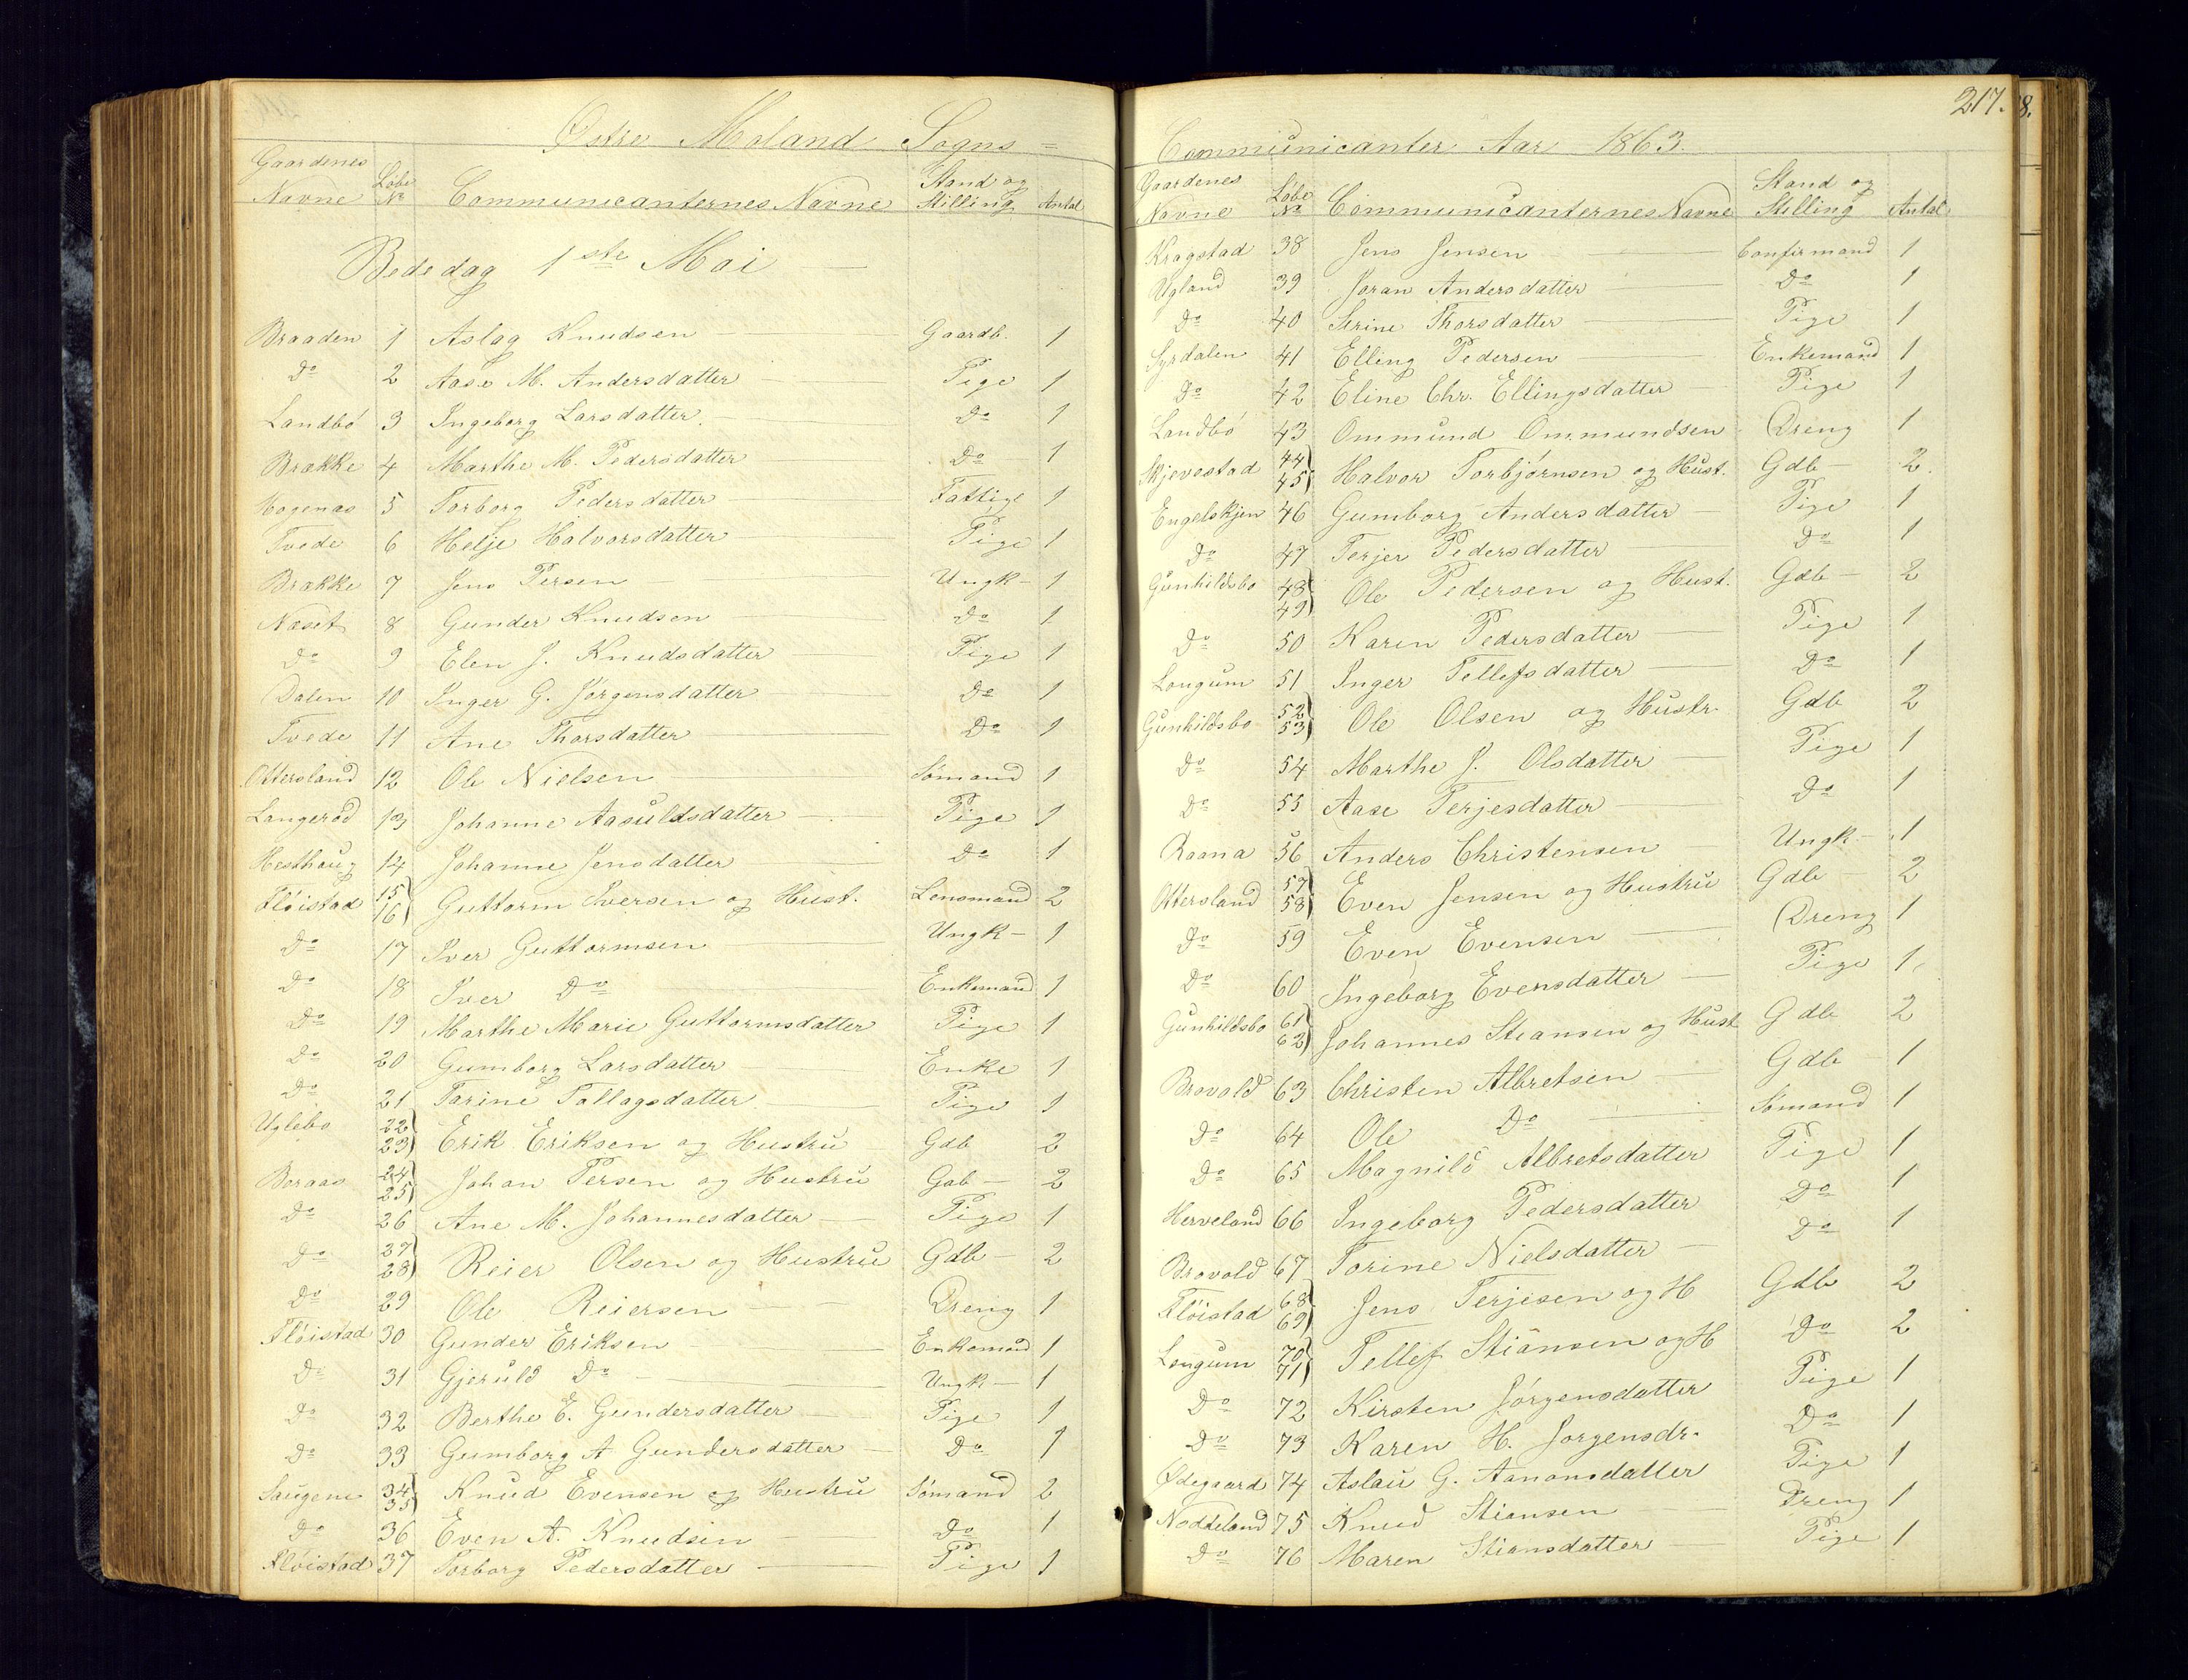 Østre Moland Sogns =
Gaardenes Navne Løbe No Communicanternes Navne Stand og Stilling Antal
Bededag 1ste Mai
Braaden 1 Aslag Knudsen Gaardb. 1
Do 2 Aase M. Andersdatter Pige 1
Landbø 3 Ingeborg Larsdatter Do 1
Brække 4 Marthe M. Pedersdatter Do 1
5 Torborg Pedersdatter Fattige 1
Tvede 6 Helje Halvorsdatter Pige 1
Brække 7 Jens Persen Ungk- 1
Næset 8 Gunder Knudsen Do 1
Do 9 Elen J. Knudsdatter Pige 1
Dalen 10 Inger G. Jørgensdatter Do 1
Tvede 11 Ane Thorsdatter Do 1
Ottersland 12 Ole Nielsen Sømand 1
Langerød 13 Johanne Aasuldsdatter Pige 1
Hesthaug 14 Johanne Jensdatter Do 1
Fløistad 15 16 Guttorm Iversen og Hust. Lensmand 2
Do 17 Iver Guttormsen Ungk- 1
Do 18 Iver Do Enkemand 1
Do 19 Marthe Marie Guttormsdatter Pige 1
Do 20 Gumborg Larsdatter Enke 1
Do 21 Tarine Tallagsdatter Pige 1
Uglebo 22 23 Erik Eriksen og Hustrü Gdb 2
Boraas 24 25 Johan Persen og Hustrü Gdb - 2
Do 26 Ane M. Johannesdatter Pige 1
Do 27 28 Reier Olsen og Hustrü Gdb - 2
Do 29 Ole Reiersen Dreng 1
Fløistad 30 Gunder Eriksen Enkemand 1
Do 31 Gjeruld Do Ungk- 1
Do 32 Berthe E. Gundersdatter Pige 1
Do 33 Gumborg A Gundersdatter Do 1
Saugene 34 35 Knud Evensen og Hustrü Sømand 2
Do 36 Even A. Knudsen Do 1
Fløistad 37 Torborg Pedersdatter Pige 1
217.
8.
Communicanter Aar 1863.
Gaardenes Navne Løbe No Communicanternes Navne Stand og Stilling Antal
Kragstad 38 Jens Jensen Confirmand 1
Ugland 39 Joran Andersdatter Do 1
Do 40 Strine Thorsdatter Pige 1
Syrdalen 41 Elling Pedersen Enkemand 1
Do 42 Eline Chr. Ellingsdatter Pige 1
Landbø 43 Ommund Ommundsen Dreng 1
Skjevestad 44 45 Halvor Torbjørnsen og Hust. Gdb - 2.
Engelskjen 46 Gumborg Andersdatter Pige 1
Do 47 Terjer Pedersdatter Do 1
Gunhildsbo 48 49 Ole Pedersen og Hust. Gdb - 2
Do 50 Karen Pedersdatter Pige 1
Longum 51 Inger Tellefsdatter Do 1
Gunhildsbo 52 53 Ole Olsen og Hustr. Gdb 2
Do 54 Marthe J. Olsdatter Pige 1
Do 55 Aase Terjesdatter Do 1
Raana 56 Anders Christensen Ungk - 1
Ottersland 57 58 Even Jensen og Hustrü Gdb - 2
Do 59 Even Evensen Dreng 1
Do 60 Ingeborg Evensdatter Pige 1
Gunhildsbo 61 62 Johannes Stiansen og Hust Gdb 2
Brovold 63 Christen Albretsen Gdb 1
Do 64 Ole Do Sømand 1
Do 65 Magnild Albretsdatter Pige 1
Herveland 66 Ingeborg Pedersdatter Do 1
Brovold 67 Torine Nielsdatter Do 1
Fløistad 68 69 Jens Terjesen og H Gdb 2
Longum 70 71 Tellef Stiansen og H Do 2
Do 72 Kirsten Jørgensdatter Pige 1
Do 73 Karen H. Jorgensdr. Do 1
Ødegaard 74 Aslau G. Aanonsdatter Pige 1
Noddeland 75 Knud Stiansen Dreng 1
Do 76 Maren Stiansdatter Pige 1